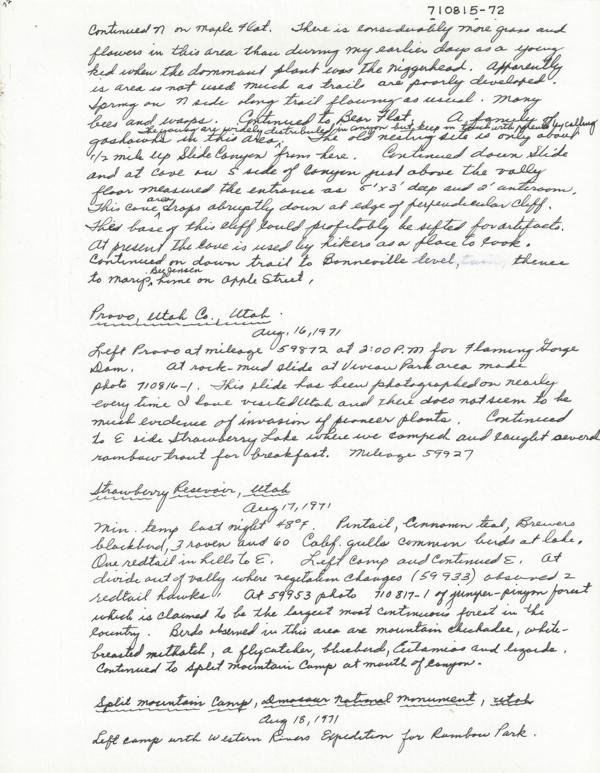 710815-72
Continued N on Maple Flat. There is considerably more grass and
flowers in this area than during my earlier days as a young
kid when the dominant plant was the niggerhead. Apparently
is area is not used much as trails are poorly developed.
Spring on N side along trail flowing as usual. Many
bees and wasps. Continued to Bear Flat. A family of
The young are widely distributed in canyon but keep in touch with parents by calling
goshawks in this area. The old nesting site is only about
1/2 mile up Slide Canyon from here. Continued down Slide
and at cave on S side of Canyon just above the valley
floor measured the entrance as 6'x3' deep and 2' anteroom.
This cave area drops abruptly down at edge of perpendicular cliff.
This base of this cliff could profitably be sifted for artifacts.
At present the cave is used by hikers as a place to look.
Continued on down trail to Bonneville level, thence
to Mary's Bee Jensen home on Apple Street.
Provo, Utah Co., Utah.
Aug. 16, 1971
Left Provo at mileage 59872 at 2:00 P.M for Flaming Gorge
Dam. At rock-mud slide at Vivian Park area made
photo 710816-1. This slide has been photographed on nearly
every time I have visited Utah and there does not seem to be
much evidence of invasion of pioneer plants. Continued
to E side Strawberry Lake where we camped and caught several
rainbow trout for breakfast. Mileage 59927
Strawberry Resevoir, Utah
Aug 17, 1971
Min. temp last night 48°F. Pintail, Cinnamon teal, Brewers
blackbird, 3 raven and 60 Calif. gulls common birds at lake.
One redtail in hills to E. Left camp and continued E. At
divide out of vally where vegetation changes (59933) observed 2
redtail hawks. At 59953 photo 710817-1 of juniper-pinyon forest
which is claimed to be the largest most continuous forest in the
country. Birds observed in this area are mountain chickadee, white-
breasted nuthatch, a flycatcher, bluebird, Eutamias and lizards.
Continued to Split Mountain Camp at mouth of Canyon.
Split Mountain Camp, Dinosaur National Monument, Utah
Aug 18, 1971
Left camp with Western Rivers Expedition for Rainbow Park.